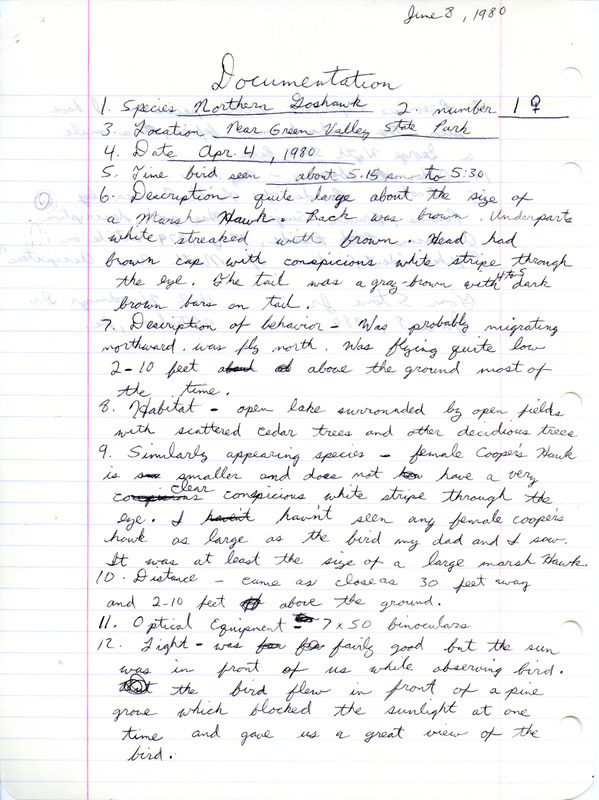 June 8, 1980
Documentation
1. Species Northern Goshawk 2. number 1 ♀
3. Location Near Green Valley State Park
4. Date Apr. 4, 1980
5. Time bird seen about 5:15 pm to 5:30
6. Description - quite large about the size of
a Marsh Hawk. Back was brown. Underparts
white streaked with brown. Head had
brown cap with conspicious white stripe through
the eye. The tail was a gray-brown with 4 to 5 dark
brown bars on tail.
7. Description of behavior - Was probably migrating
northward. was fly north. Was flying quite low
2-10 feet above the ground most of
the time.
8. Habitat - open lake surronaded by open fields
with scattered cedar trees and other decidious trees
9. Similarly appearing species - female Cooper's Hawk
is smaller and does not have a very
clear conspicious white stripe through the
eye. I havn't seen any female cooper's
hawk as large as the bird my dad and I saw.
It was at least the size of a large marsh Hawk.
10. Distance - came as close as 30 feet away
and 2-10 feet above the ground.
11. Optical Equipment - 7 x 50 binoculars
12. Light - was fairly good but the sun
was in front of us while observing bird.
the bird flew in front of a pine
grove which blocked the sunlight at one
time and gave us a great view of the
bird.